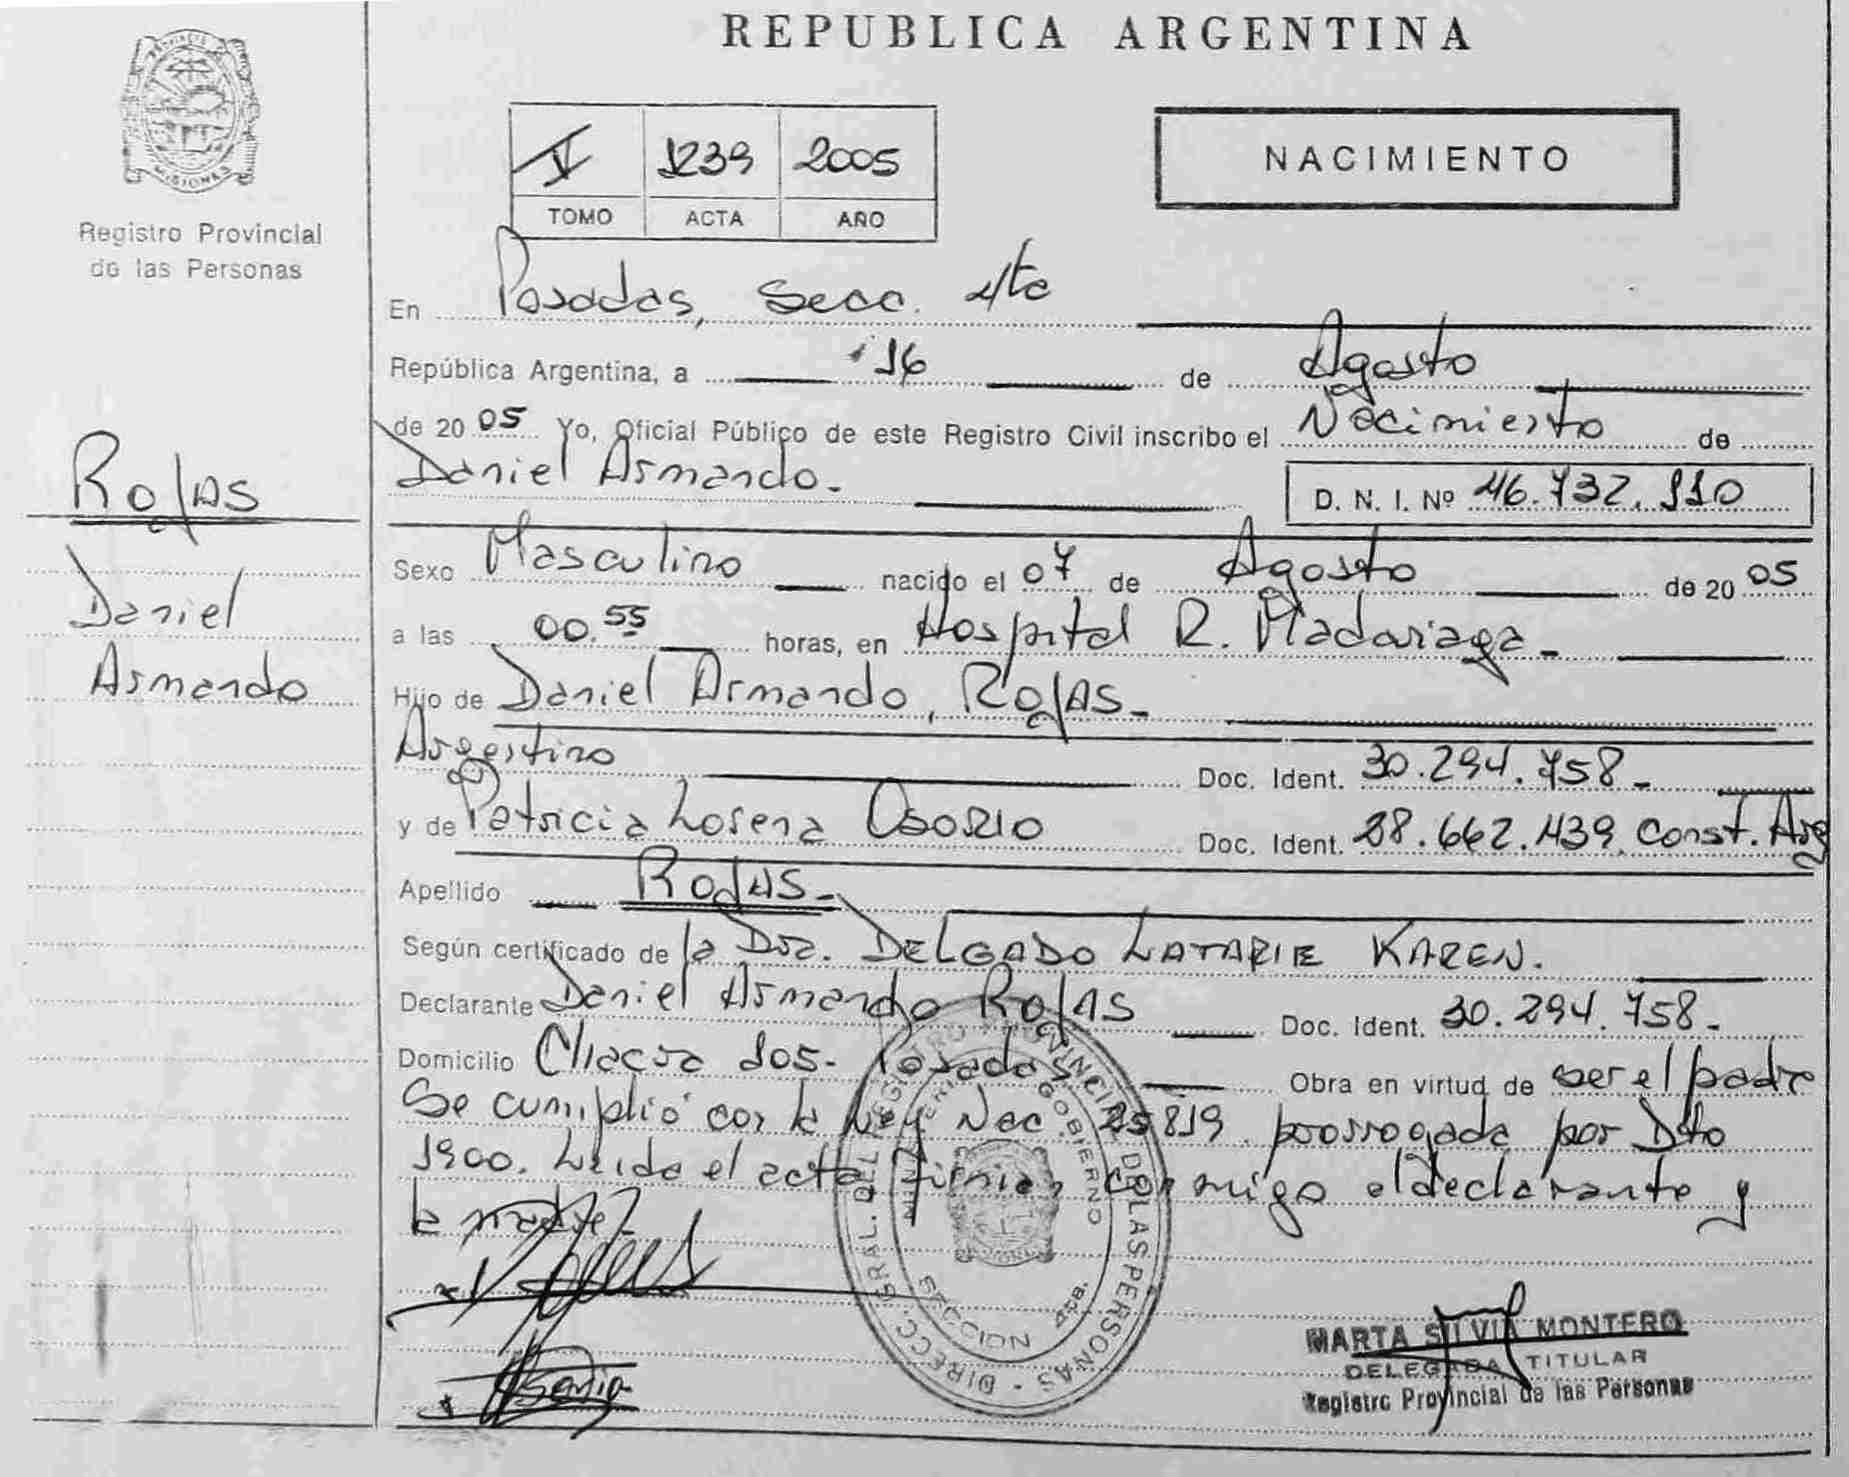 REPUBLICA ARGENTINA
PROVINCIA DE
MISIONES
Registro Provincial
de las Personas
V 1239 2005
TOMO ACTA AÑO
NACIMIENTO
En Posadas, Secc. 4ta
República Argentina, a 16 de Agosto
de 2005 Yo, Oficial Público de este Registro Civil inscribo el Nacimiento de
Daniel Armando.
D. N. I. Nº 46.732.110
Rojas
Daniel
Armando
Sexo Masculino nacido el 07 de Agosto de 2005
a las 00.55 horas, en Hospital R. Madariaga
Hijo de Daniel Armando, Rojas
Argentino Doc. Ident. 30.294.758
y de Patricia Lorena Osorio Doc. Ident. 28.662.439 Const. Arg
Apellido Rojas
Según certificado de la Dra. DELGADO LATARIE KAREN.
Declarante Daniel Armando Rojas Doc. Ident. 30.294.758
Domicilio Chacra 105- Posadas Obra en virtud de ser el padre
Se cumplió con la Ley Nac. 25819 prorrogada por Dto
1900. Leida el acta firman conmigo el declarante y
la madre
DIRECC. GRAL. DEL REGISTRO PROVINCIAL DE LAS PERSONAS
GOBIERNO
SECCION 4ta.
MARTA SILVIA MONTERO
DELEGADA TITULAR
Registro Provincial de las Personas